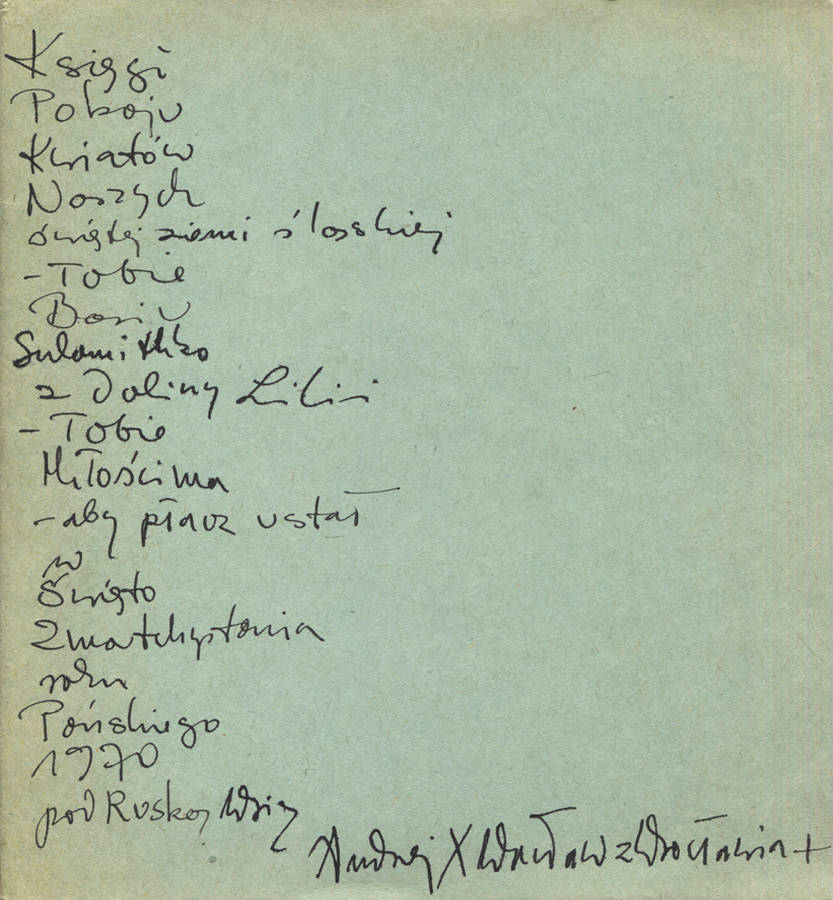 Księgi
Pokoju
Kwiatów
Naszych
świętej ziemi śląskiej
- Tobie
Basiu
Sulamitko
z Doliny Lilii
- Tobie
Miłościwa
- aby płacz ustał
w
Święto
Zmartchystania
roku
Pańskiego
1970
pod Ruską Wsią
Andrzej X Wacław z Wrocławia +